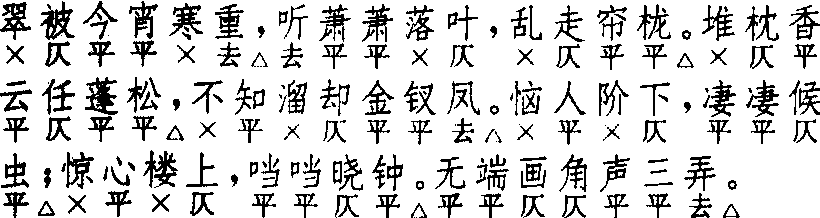 翠被今宵寒重，听萧萧落叶，乱走帘栊。堆枕香
× 仄 平 平 × 去 △ 去 平 平 × 仄 × 仄 平 平 △ × 仄 平
云任蓬松，不知溜却金钗凤。恼人阶下，凄凄候
平 仄 平 平 △ × 平 × 仄 平 平 去 △ × 平 × 仄 平 平 仄
虫；惊心楼上，𪠽𪠽晓钟。无端画角声三弄。
平 △ × 平 × 仄 平 平 仄 平 △ 平 平 仄 仄 平 平 去 △